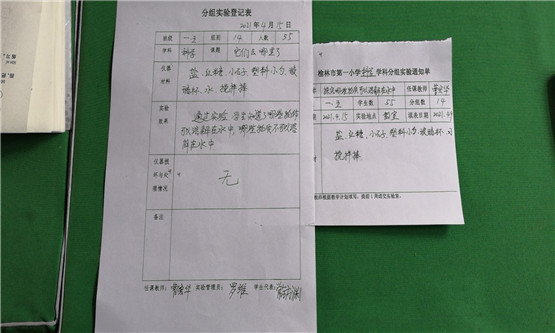 分组实验登记表
2021年4月15日
班级 一.五 组别 14 人数 55
学科 科学 课题 它们去哪里了
仪器材料 盐、红糖、小石子、塑料小勺、玻璃杯、水、搅拌棒
实验效果 通过实验 学生知道了哪些物体可以溶解在水中,哪些物体不可以溶解在水中
仪器损坏与处理情况 无
备注
任课教师: 实验管理员: 罗维 学生代表:
榆林市第一小学科学学科分组实验通知单
任课教师
一.五 学生数 55 分组数 14
2021.4.15 实验地点 教室 填表日期
盐、红糖、小石子、塑料小勺、玻璃杯、水
搅拌棒